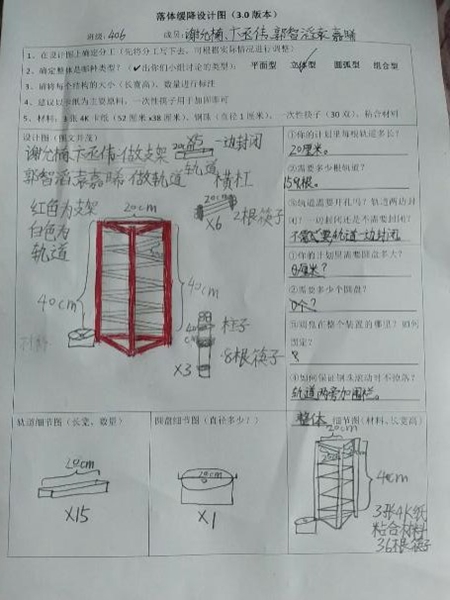 落体缓降设计图（3.0版本）
班级：406 成员：谢允楠、卞丞伟、郭智滔、袁嘉晞
1、在设计图上确定分工（先将分工写下去，可根据实际情况进行调整）
2、确定整体是哪种类型？（✓出你们小组讨论的类型）： 平面型 立体型 圆弧型 组合型
3、请将每个结构的大小（长宽高）、数量进行标注
4、建议以卡纸为主要原料，一次性筷子用于加固即可
5、材料：3张4K卡纸（52厘米x38厘米）、钢珠（直径1厘米）、一次性筷子（30双）、粘合材料
设计图（图文并茂）
谢允楠、卞丞伟-做支架
郭智滔袁嘉晞-做轨道
20cm
X5
一边封闭
轨道
横杠
20cm
X6
2根筷子
红色为支架
白色为
轨道
20cm
40cm
40cm
40
cm
柱子
8根筷子
X3
①你的计划里每根轨道多长？
20厘米。
②需要多少根轨道？
15根。
③轨道需要开孔吗？轨道两边封闭？一边封闭还是不需要封闭？
轨道一边封闭
①你的计划里需要圆盘多大？
0厘米？
②需要多少个圆盘？
0个？
③圆盘在整个装置的哪里？如何固定？
④如何保证钢珠滚动时不掉落？
轨道两旁加围栏。
轨道细节图（长宽、数量）
20cm
X15
圆盘细节图（直径多少？）
20cm
X1
整体 细节图（材料、长宽高）
20cm
40cm
3张4K纸
粘合材料
36根筷子